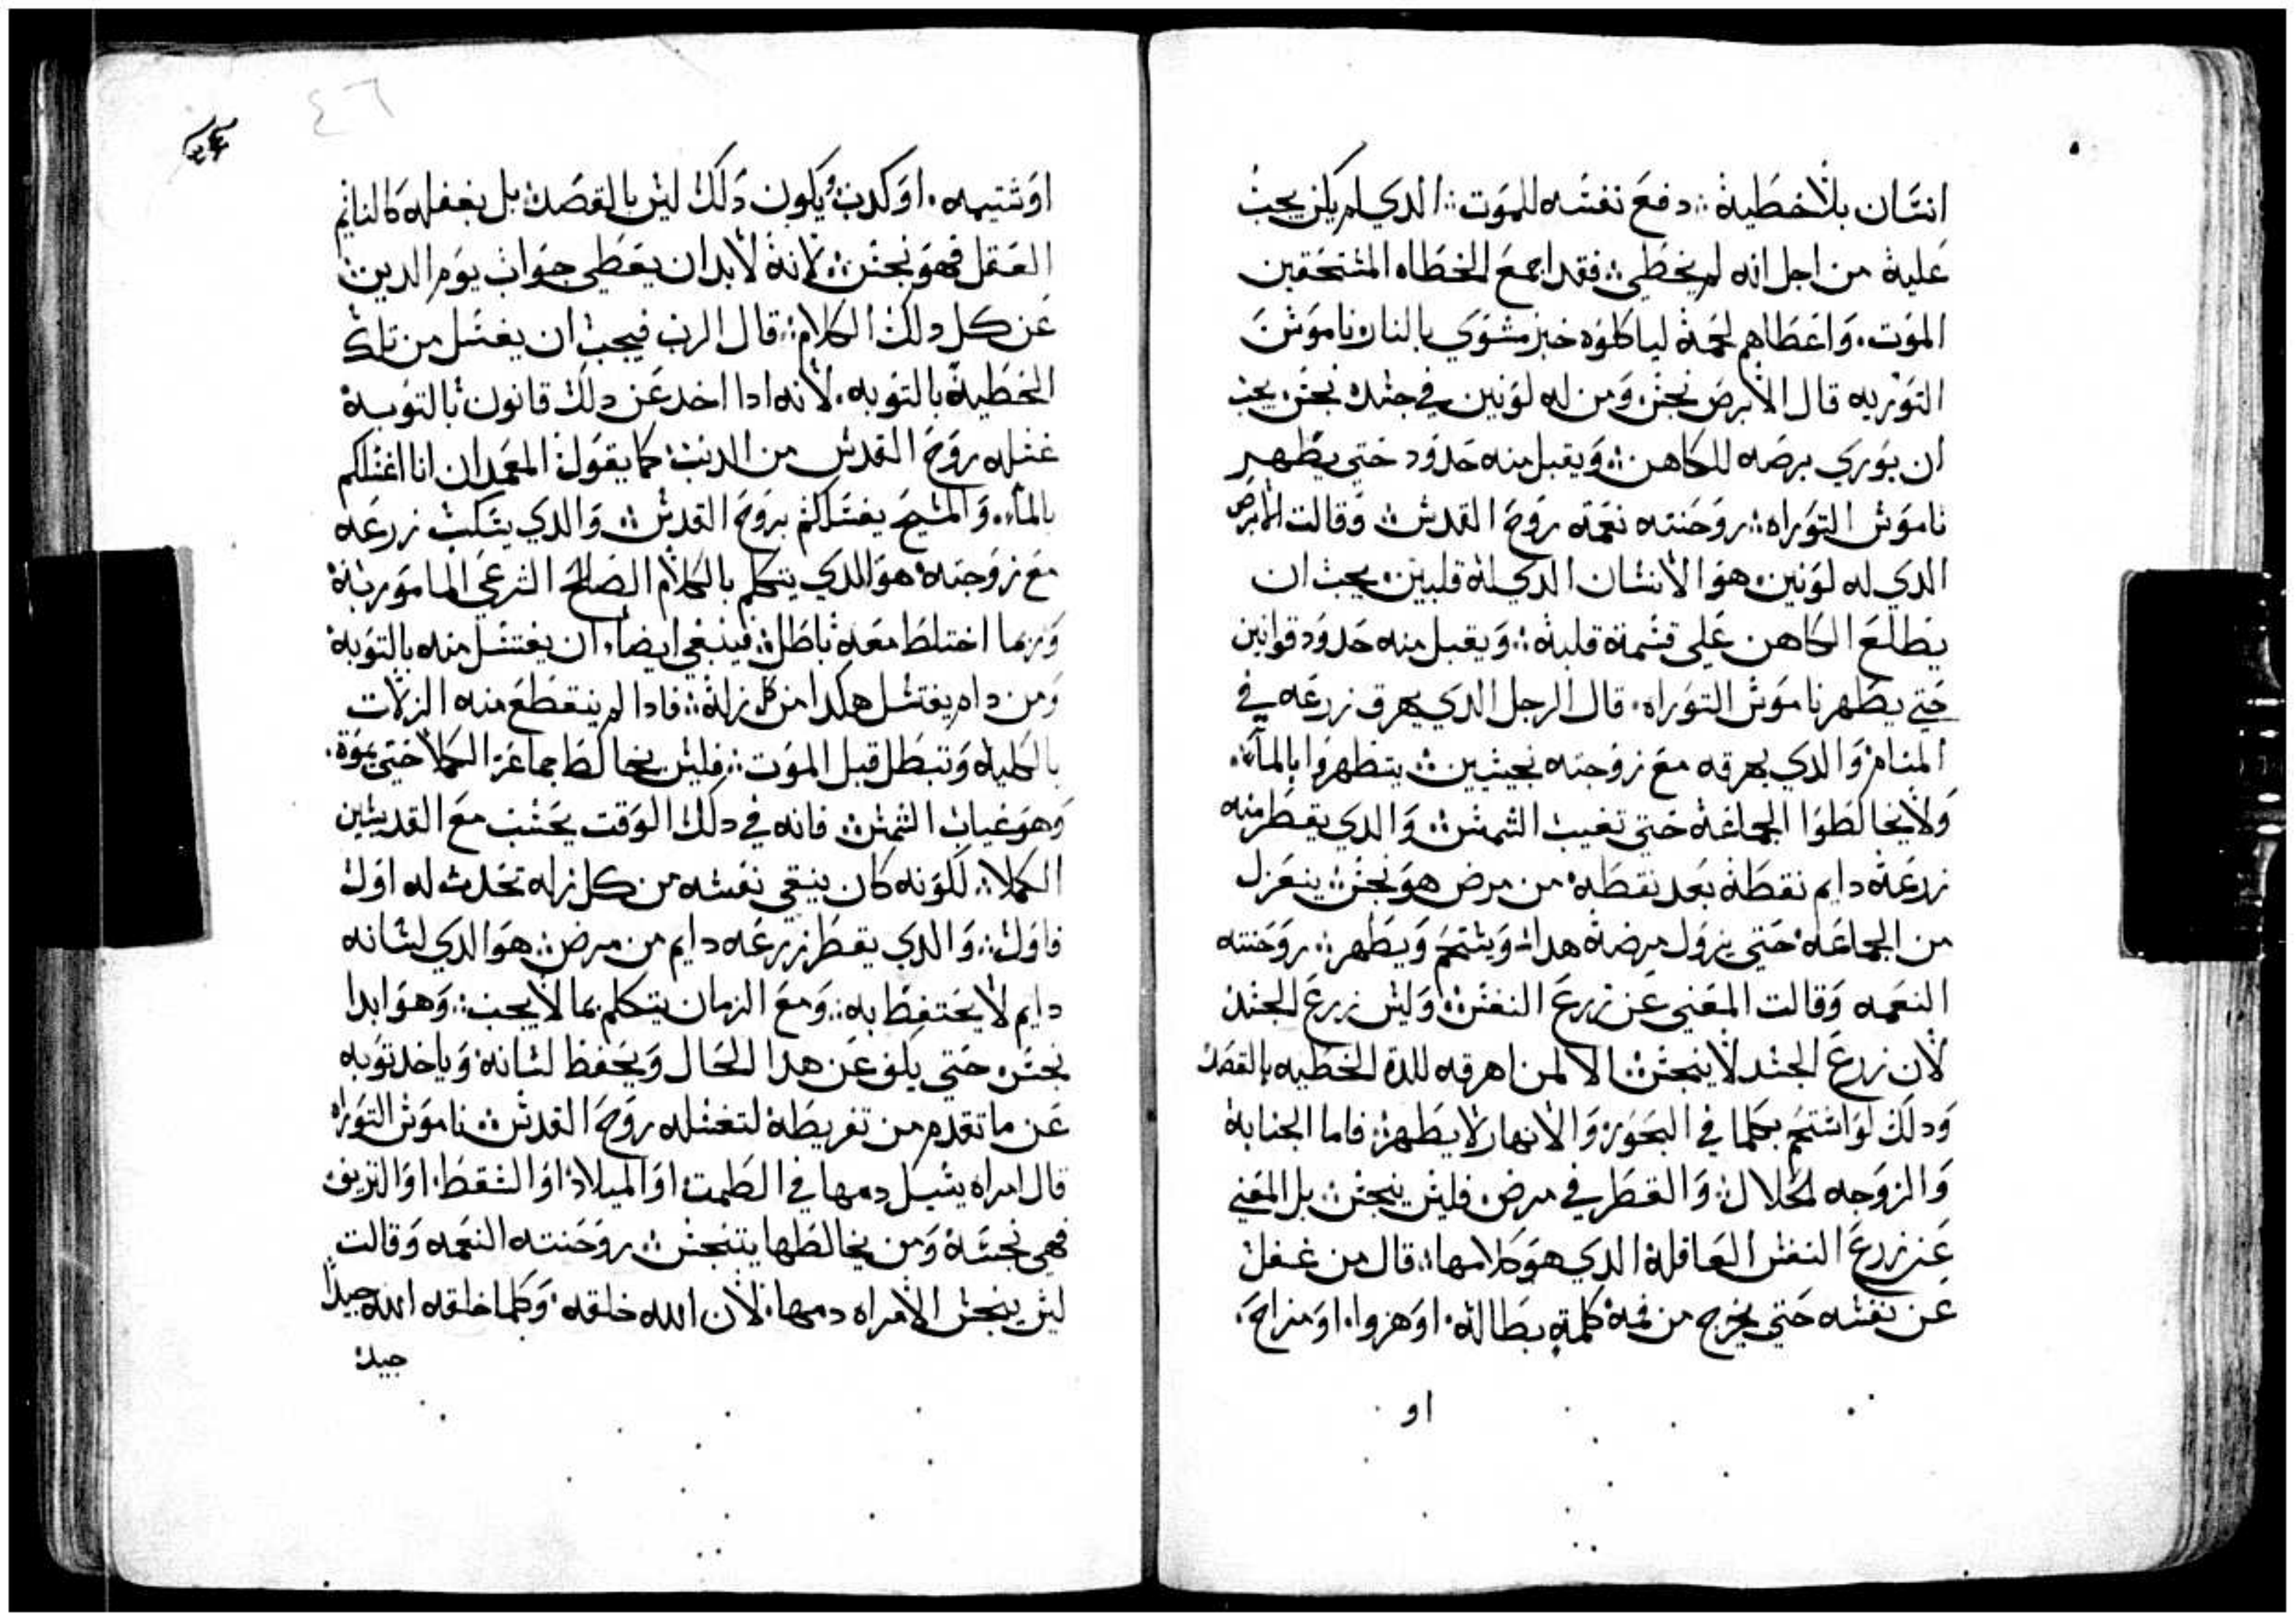 انسان بلا خطية ؞ دفع نفسه للموت ؞ الدي لم يكن يجب
علية من اجل انه لم يخطي ؞ فقد اجمع الخطاه المستحقين
الموت . واعطاهم لحمة لياكلوه خبز مشوي بالنار ناموس
التوريه قال الابرص نجس ومن له لونين في جسده نجس يجب
ان يوري برصه للكاهن ؞ ويقبل منه حدود حتى يطهر
ناموس التوراه ؞ روحنته نعمة روح القدس ؞ وقالت الابرص
الدي له لونين هو الانسان الدي له قلبين يجب ان
يطلع الكاهن على قسمة قلبة ؞ ويقبل منه حدود قوانين
حتي يطهر ناموس التوراه . قال الرجل الدي يهرق زرعه في
المنام والدي يهرقه مع زوجته نجيسين ؞ يتطهروا بالماء .
ولا يخالطوا الجماعة حتى تغيب الشمس ؞ والدي يقطر منه
زرعة دايم نقطة بعد نقطة من مرض هو نجس ؞ ينعزل
من الجماعه حتي يزول مرضة هدا ؞ ويستحم ويطهر ؞ روحنته
النعمه وقالت المعني عن زرع النفس ؞ وليس زرع الجسد
لان زرع الجسد لا ينجس ؞ الا لمن اهرقه للدة الخطيه بالقصد
ودلك لو استحم بكلما في البحور والانهار لا يطهر ؞ فاما الجنابة
والزوجه الحلال ؞ والقطر في مرض فليس ينجس ؞ بل المعني
عن زرع النفس العاقلة الدي هو كلامها ؞ قال من غفل
عن نفسه حتي يخرج من فمه كلمة بطاله . او هزوا . او مزاح .
او
٤٦
او شتيمه . او كدب ويكون دلك ليس بالقصد بل بغفله كالنايم
العقل فهو نجس ؞ لانه لابد ان يعطي جواب يوم الدين
عن كل دلك الكلام ؞ قال الرب فيجب ان يغتسل من تلك
الخطية بالتوبه . لانه ادا اخد عن دلك قانون بالتوبة
غسله روح القدس من الدنب كما يقول المعمدان انا اغسلكم
بالماء . والمسيح يغسلكم بروح القدس ؞ والدي يسكب زرعه
مع زوجته هو الدي يتكلم بالكلام الصالح الشرعي المامور به
وربما اختلط معة باطل ؞ فينبغي ايضا . ان يغتسل منه بالتوبة
ومن دام يغتسل هكدا من كل زلة ؞ فادا لم ينقطع منه الزلات
بالكلية وتبطل قبل الموت ؞ فليس يخالط جماعة الكملا حتي يموت .
وهو غياب الشمس ؞ فانه في دلك الوقت يحسب مع القديسين
الكملا ؞ لكونه كان ينقي نفسه من كل زله تحدث له اول
فاول ؞ والدي يقطر زرعه دايم من مرض ؞ هو الدي لسانه
دايم لا يحتفظ به ؞ ومع الزمان يتكلم بما لا يجب ؞ وهو ابدا
نجس حتي يكف عن هدا الحال ويحفظ لسانة وياخد توبه
عن ما تقدم من تفريطة لتغسله روح القدس ؞ ناموس التوراه
قال امراه يسيل دمها في الطمت او الميلاد او السقط . او النزيف
فهي نجسة ومن يخالطها يتنجس ؞ روحنته النعمه وقالت
ليس ينجس الامراه دمها . لان الله خلقه . وكلما خلقه الله جيدا
جيد